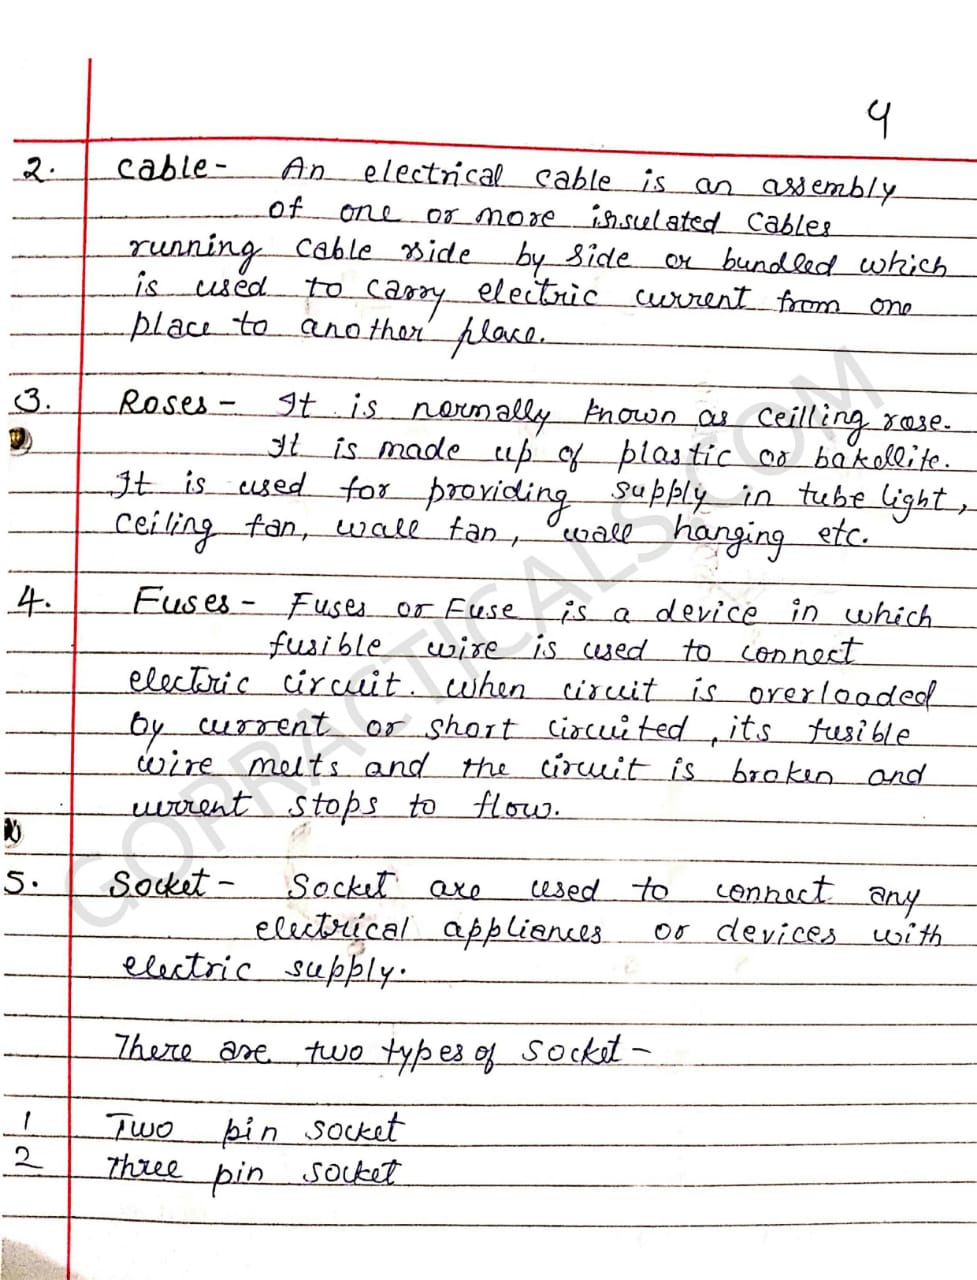 4
2. Cable- An electrical cable is an assembly
of one or more insulated cables
running cable side by side or bundled which
is used to carry electric current from one
place to another place.
3. Roses - It is normally known as ceilling rose.
It is made up of plastic or bakellite.
It is used for providing supply in tube light,
ceiling fan, wall fan, wall hanging etc.
4. Fuses - Fuses or Fuse is a device in which
fusible wire is used to connect
electric circuit. When circuit is overloaded
by current or short circuited, its fusible
wire melts and the circuit is broken and
current stops to flow.
5. Socket - Socket are used to connect any
electrical appliences or devices with
electric supply.
There are two types of socket -
1 Two pin socket
2 Three pin socket
GOPRACTICALS.COM